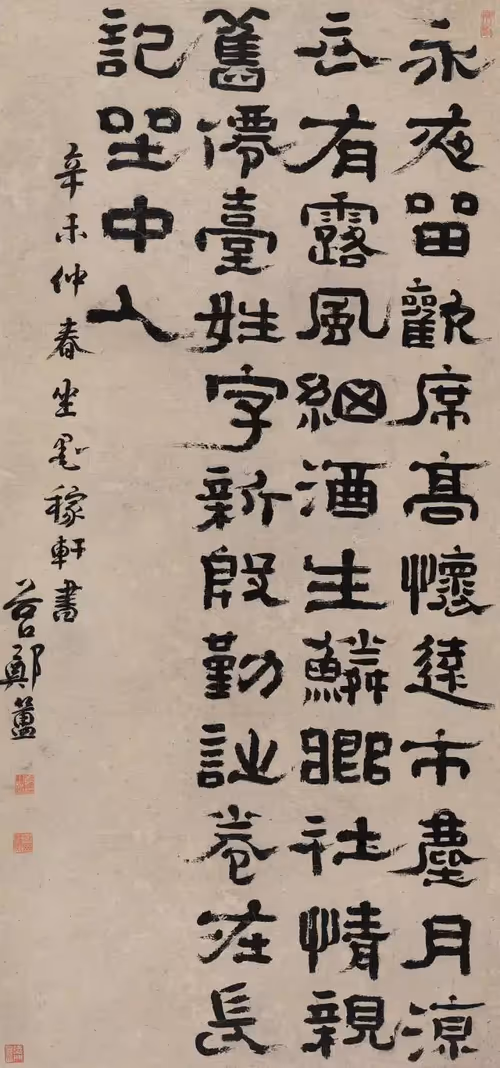 永夜留歡席高懷遠市塵月涼
云有露風細酒生鱗社情親
舊僊臺姓字新殷勤詩卷在長
記坐中人
辛未仲春坐墨稼軒書
谷口鄭簠